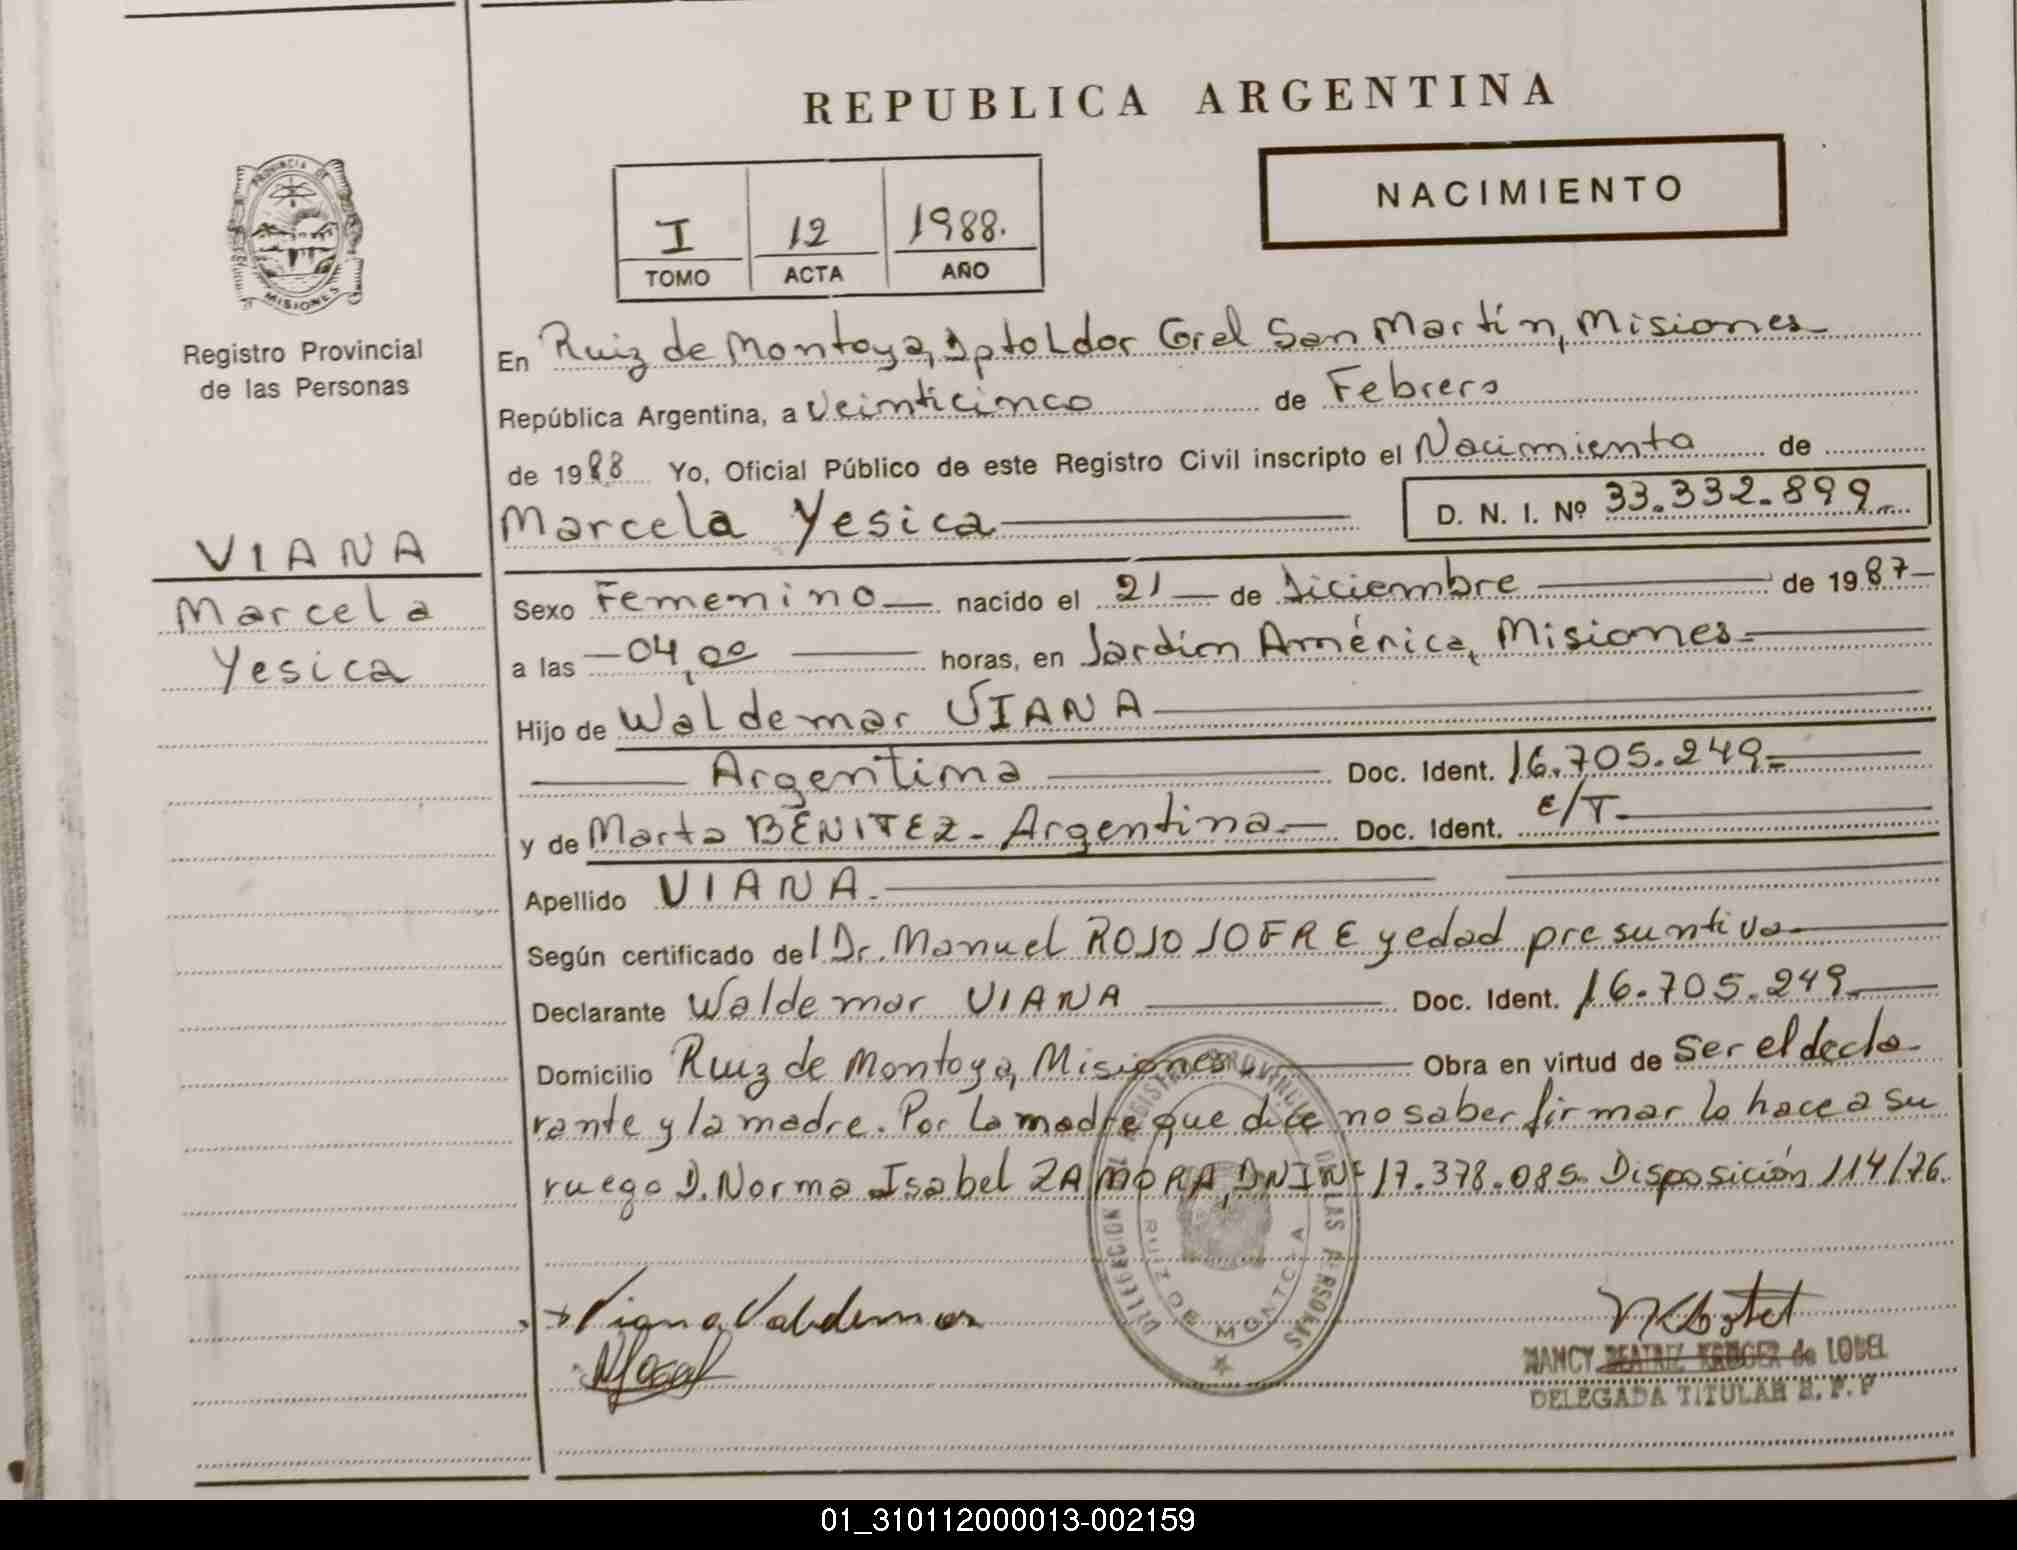 REPUBLICA ARGENTINA
NACIMIENTO
I 12 1988.
TOMO ACTA AÑO
PROVINCIA DE MISIONES
Registro Provincial
de las Personas
VIANA
Marcela
Yesica
En Ruiz de Montoya, Dpto Ldor Gral San Martín, Misiones
República Argentina, a Veinticinco de Febrero
de 1988 Yo, Oficial Público de este Registro Civil inscripto el Nacimiento de
Marcela Yesica D. N. I. Nº 33.332.899
Sexo Femenino nacido el 21 de Diciembre de 1987
a las 04,00 horas, en Jardín América, Misiones
Hijo de Waldemar VIANA
Argentina Doc. Ident. 16.705.249
y de Marta BENITEZ - Argentina Doc. Ident. E/T.
Apellido VIANA.
Según certificado del Dr. Manuel ROJO JOFRE y edad presuntiva
Declarante Waldemar VIANA Doc. Ident. 16.705.249
Domicilio Ruiz de Montoya, Misiones Obra en virtud de Ser el decla
rante y la madre. Por la madre que dice no saber firmar lo hace a su
ruego D. Norma Isabel ZAMORA, DNI Nº 17.378.085. Disposición 114/76.
DELEGACION REGISTRO PROVINCIAL DE LAS PERSONAS
RUIZ DE MONTOYA
Viana Valdemar
NANCY BEATRIZ KRUGER de LOBEL
DELEGADA TITULAR R. P. P
01_310112000013-002159